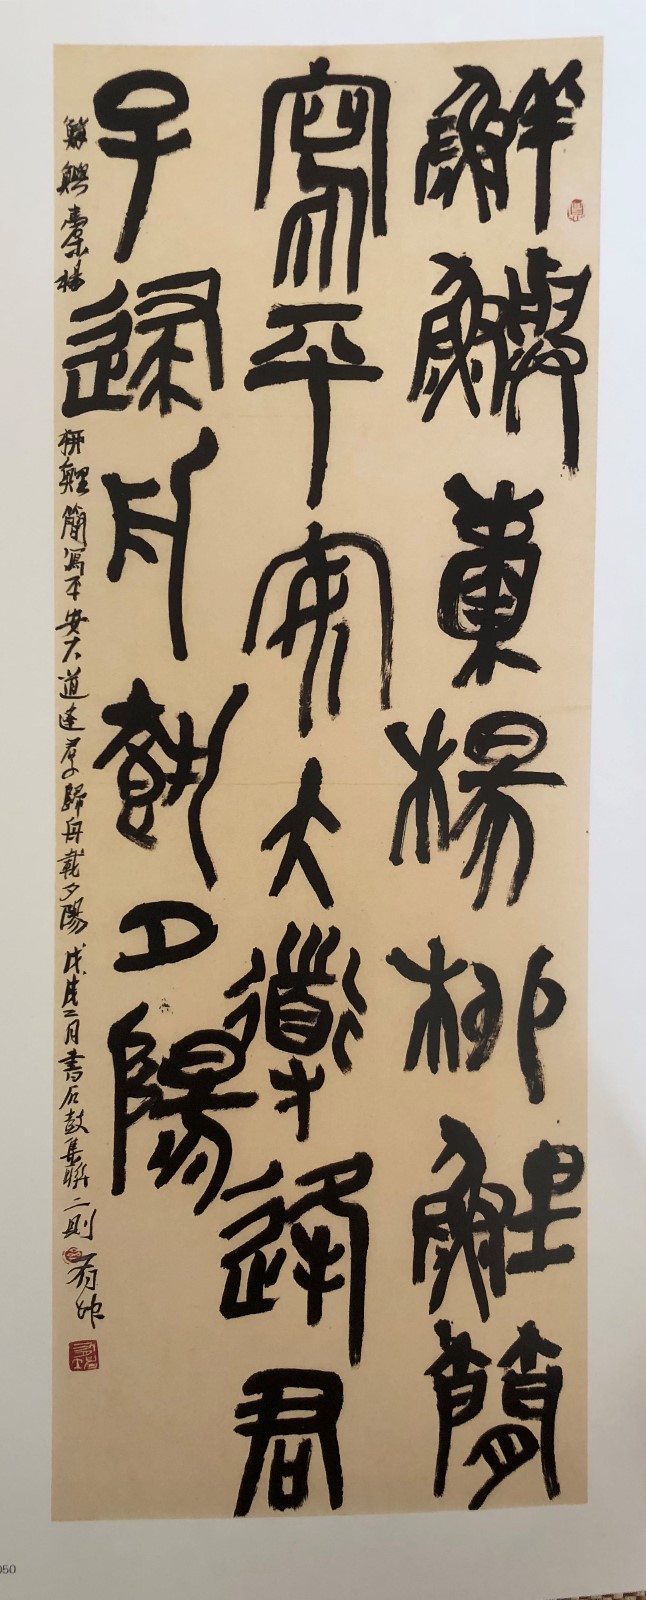 鮮鱮橐楊柳鯉簡
寫平安大道逢君
子歸舟載夕陽
鮮鱮橐楊柳鯉簡寫平安大道逢君子歸舟載夕陽 戊戌二月書石鼓集聯二則
050